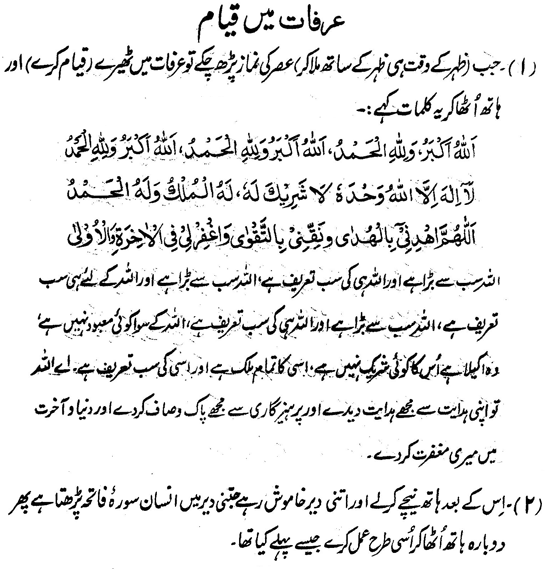 عرفات میں قیام
(۱)۔ جب (ظہر کے وقت ہی ظہر کے ساتھ ملا کر) عصر کی نماز پڑھ چکے تو عرفات میں ٹھیرے (قیام کرے) اور
ہاتھ اُٹھا کر یہ کلمات کہے :۔
اَللّٰهُ اَكْبَرُ، وَلِلّٰهِ الْحَمْدُ، اَللّٰهُ اَكْبَرُ وَلِلّٰهِ الْحَمْدُ، اَللّٰهُ اَكْبَرُ وَلِلّٰهِ الْحَمْدُ
لَآ اِلٰهَ اِلَّا اللّٰهُ وَحْدَهٗ لَا شَرِيْكَ لَهٗ، لَهُ الْمُلْكُ وَلَهُ الْحَمْدُ
اَللّٰهُمَّ اهْدِنِيْ بِالْهُدٰى وَنَقِّنِيْ بِالتَّقْوٰى وَاغْفِرْ لِيْ فِى الْاٰخِرَةِ وَالْاُوْلٰى
اللہ سب سے بڑا ہے اور اللہ ہی کی سب تعریف ہے، اللہ سب سے بڑا ہے اور اللہ کے لئے ہی سب
تعریف ہے، اللہ سب سے بڑا ہے اور اللہ ہی کی سب تعریف ہے، اللہ کے سوا کوئی معبود نہیں ہے،
وہ اکیلا ہے اُس کا کوئی شریک نہیں ہے، اسی کا تمام ملک ہے اور اسی کی سب تعریف ہے۔ اے اللہ
تو اپنی ہدایت سے مجھے ہدایت دیدے اور پرہیزگاری سے مجھے پاک و صاف کر دے اور دنیا و آخرت
میں میری مغفرت کر دے۔
(۲)۔ اِس کے بعد ہاتھ نیچے کرلے اور اتنی دیر خاموش رہے جتنی دیر میں انسان سورۂ فاتحہ پڑھتا ہے پھر
دوبارہ ہاتھ اُٹھا کر اُسی طرح عمل کرے جیسے پہلے کیا تھا۔